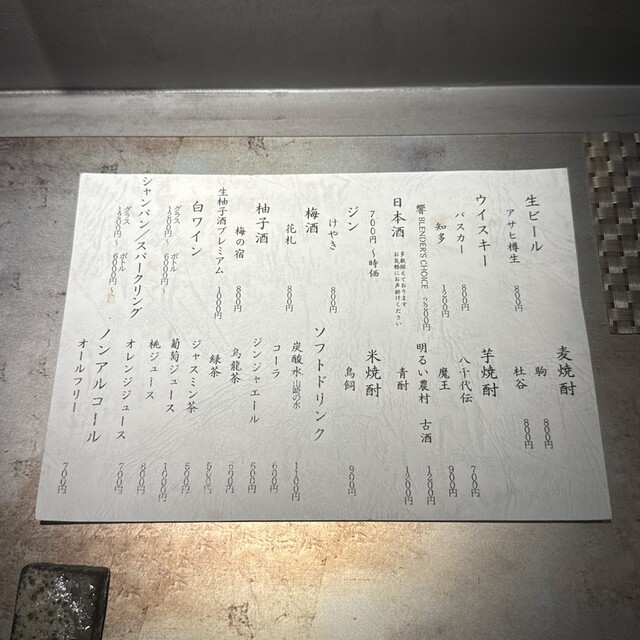 生ビール
アサヒ樽生 800円
ウイスキー
バスカー 800円
知多 1200円
響 BLENDERS CHOICE
日本酒 多数揃えております。
お気軽にお声掛けください
700円～時価
ジン
けやき 800円
梅酒
花札 800円
柚子酒
梅の宿 800円
生柚子酒プレミアム 1000円
白ワイン
グラス ボトル
6000円～
シャンパン/スパークリング
グラス ボトル
6000円～
麦焼酎
駒 800円
杜谷 800円
芋焼酎
八千代伝 700円
魔王 900円
明るい農村 古酒 1200円
青酎
米焼酎
鳥飼 900円
ソフトドリンク
炭酸水 山崎の水
コーラ 600円
ジンジャエール
烏龍茶 500円
緑茶 500円
ジャスミン茶 500円
葡萄ジュース 1000円
桃ジュース 800円
オレンジジュース 700円
ノンアルコール
オールフリー 700円